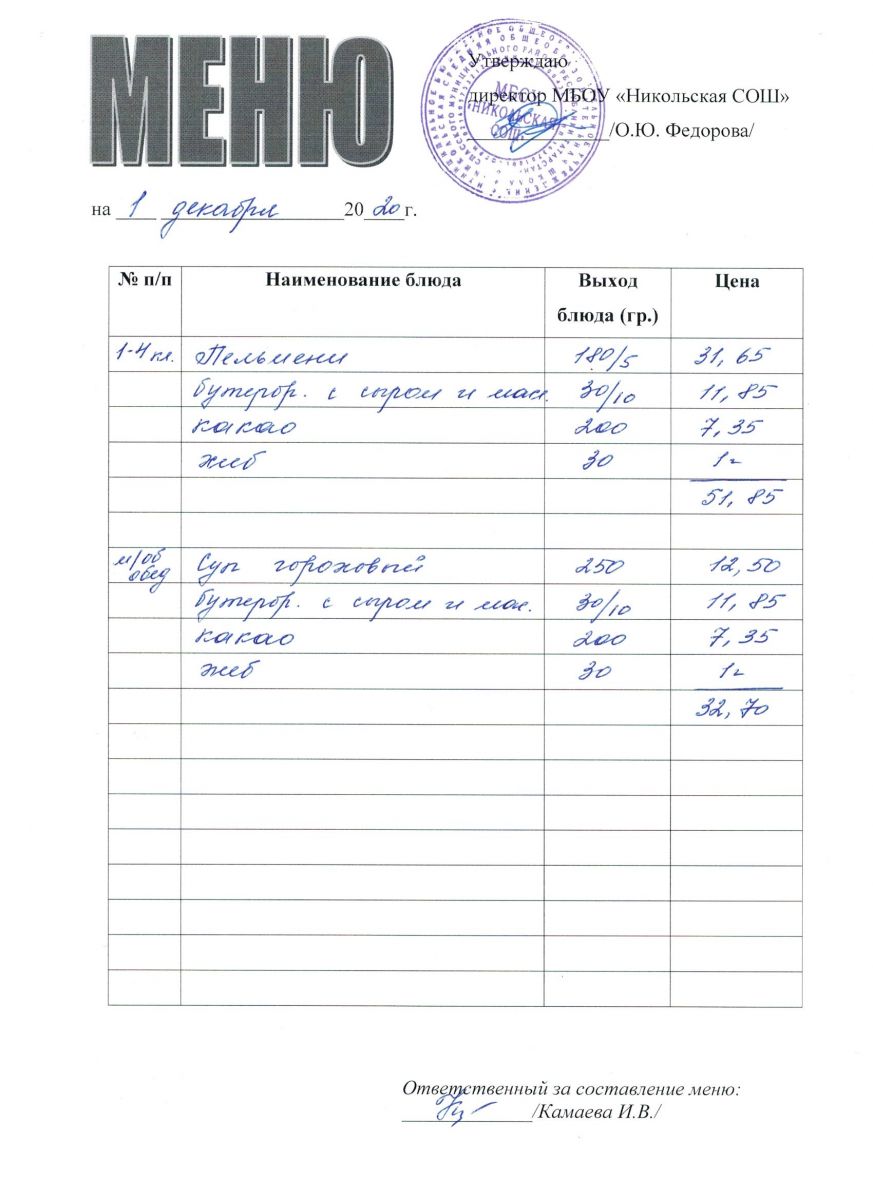 МЕНЮ
Утверждаю
директор МБОУ «Никольская СОШ»
/О.Ю. Федорова/
МБОУ
«НИКОЛЬСКАЯ
СОШ»
на 1 декабря 2020г.
№ п/п Наименование блюда Выход блюда (гр.) Цена
1-4 кл. Пельмени 180/5 31,65
бутербр. с сыром и мас. 30/10 11,85
какао 200 7,35
хлеб 30 1-
51,85
м/об обед Суп гороховый 250 12,50
бутербр. с сыром и мас. 30/10 11,85
какао 200 7,35
хлеб 30 1-
32,70
Ответственный за составление меню:
/Камаева И.В./